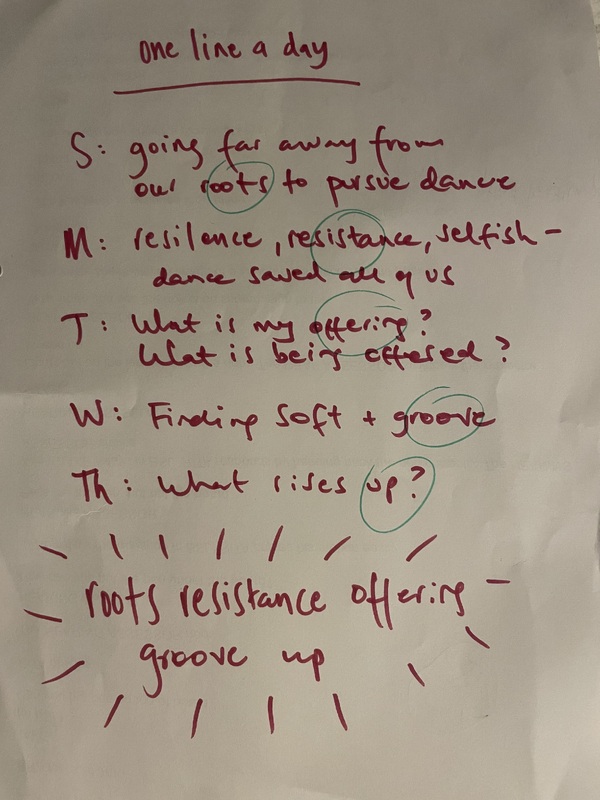 one line a day
S: going far away from
our roots to pursue dance
M: resilence, resistance, selfish -
dance saved all of us
T: What is my offering?
What is being offered?
W: Finding soft + groove
Th: What rises up?
roots resistance offering -
groove up